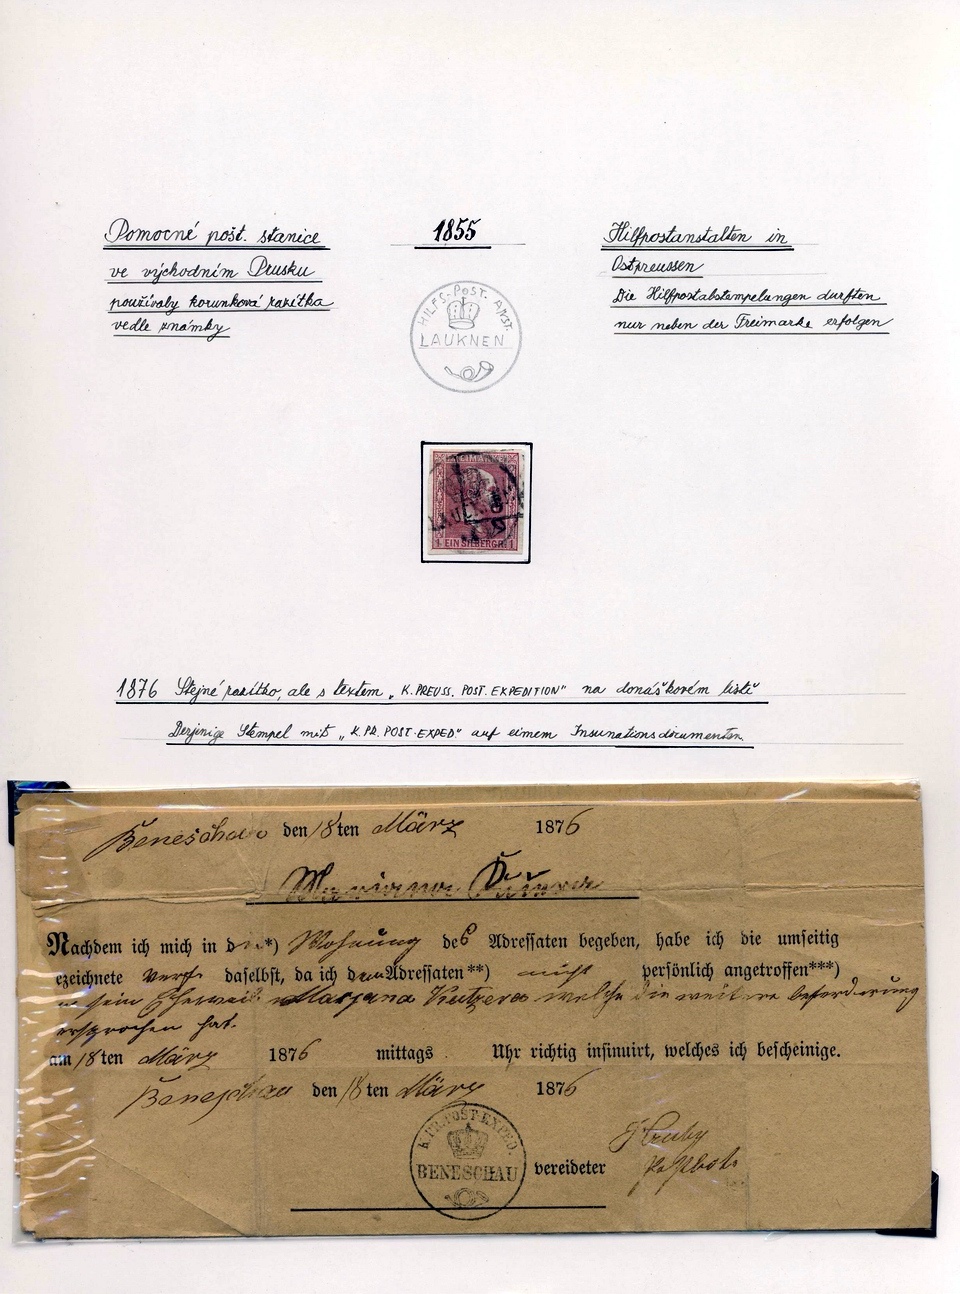 Pomocné pošt. stanice
ve východním Prusku
používaly korunková razítka
vedle známky
1855
HILFS-POST. ANST.
LAUKNEN
Hilfpostanstalten in
Ostpreussen
Die Hilfpostabstempelungen durften
nur neben der Freimarke erfolgen
1 EIN SILBERGR. 1
1876 Stejné razítko, ale s textem „K. PREUSS. POST. EXPEDITION" na donáškovém listě
Derjenige Stempel mit „K. PR. POST-EXPED" auf einem Insunationsdocumenten.
Beneschau den 18ten März 1876
Nachdem ich mich in *) Wohnung des Adressaten begeben, habe ich die umseitig
ezeichnete daselbst, da ich den Adressaten **) nicht persönlich angetroffen ***)
sein Eheweib Marjana welche die weitere beförderung
ersprochen hat.
am 18ten März 1876 mittags Uhr richtig insinuirt, welches ich bescheinige.
Beneschau den 18ten März 1876
K. PR. POST-EXPED.
BENESCHAU
vereideter
Hruby